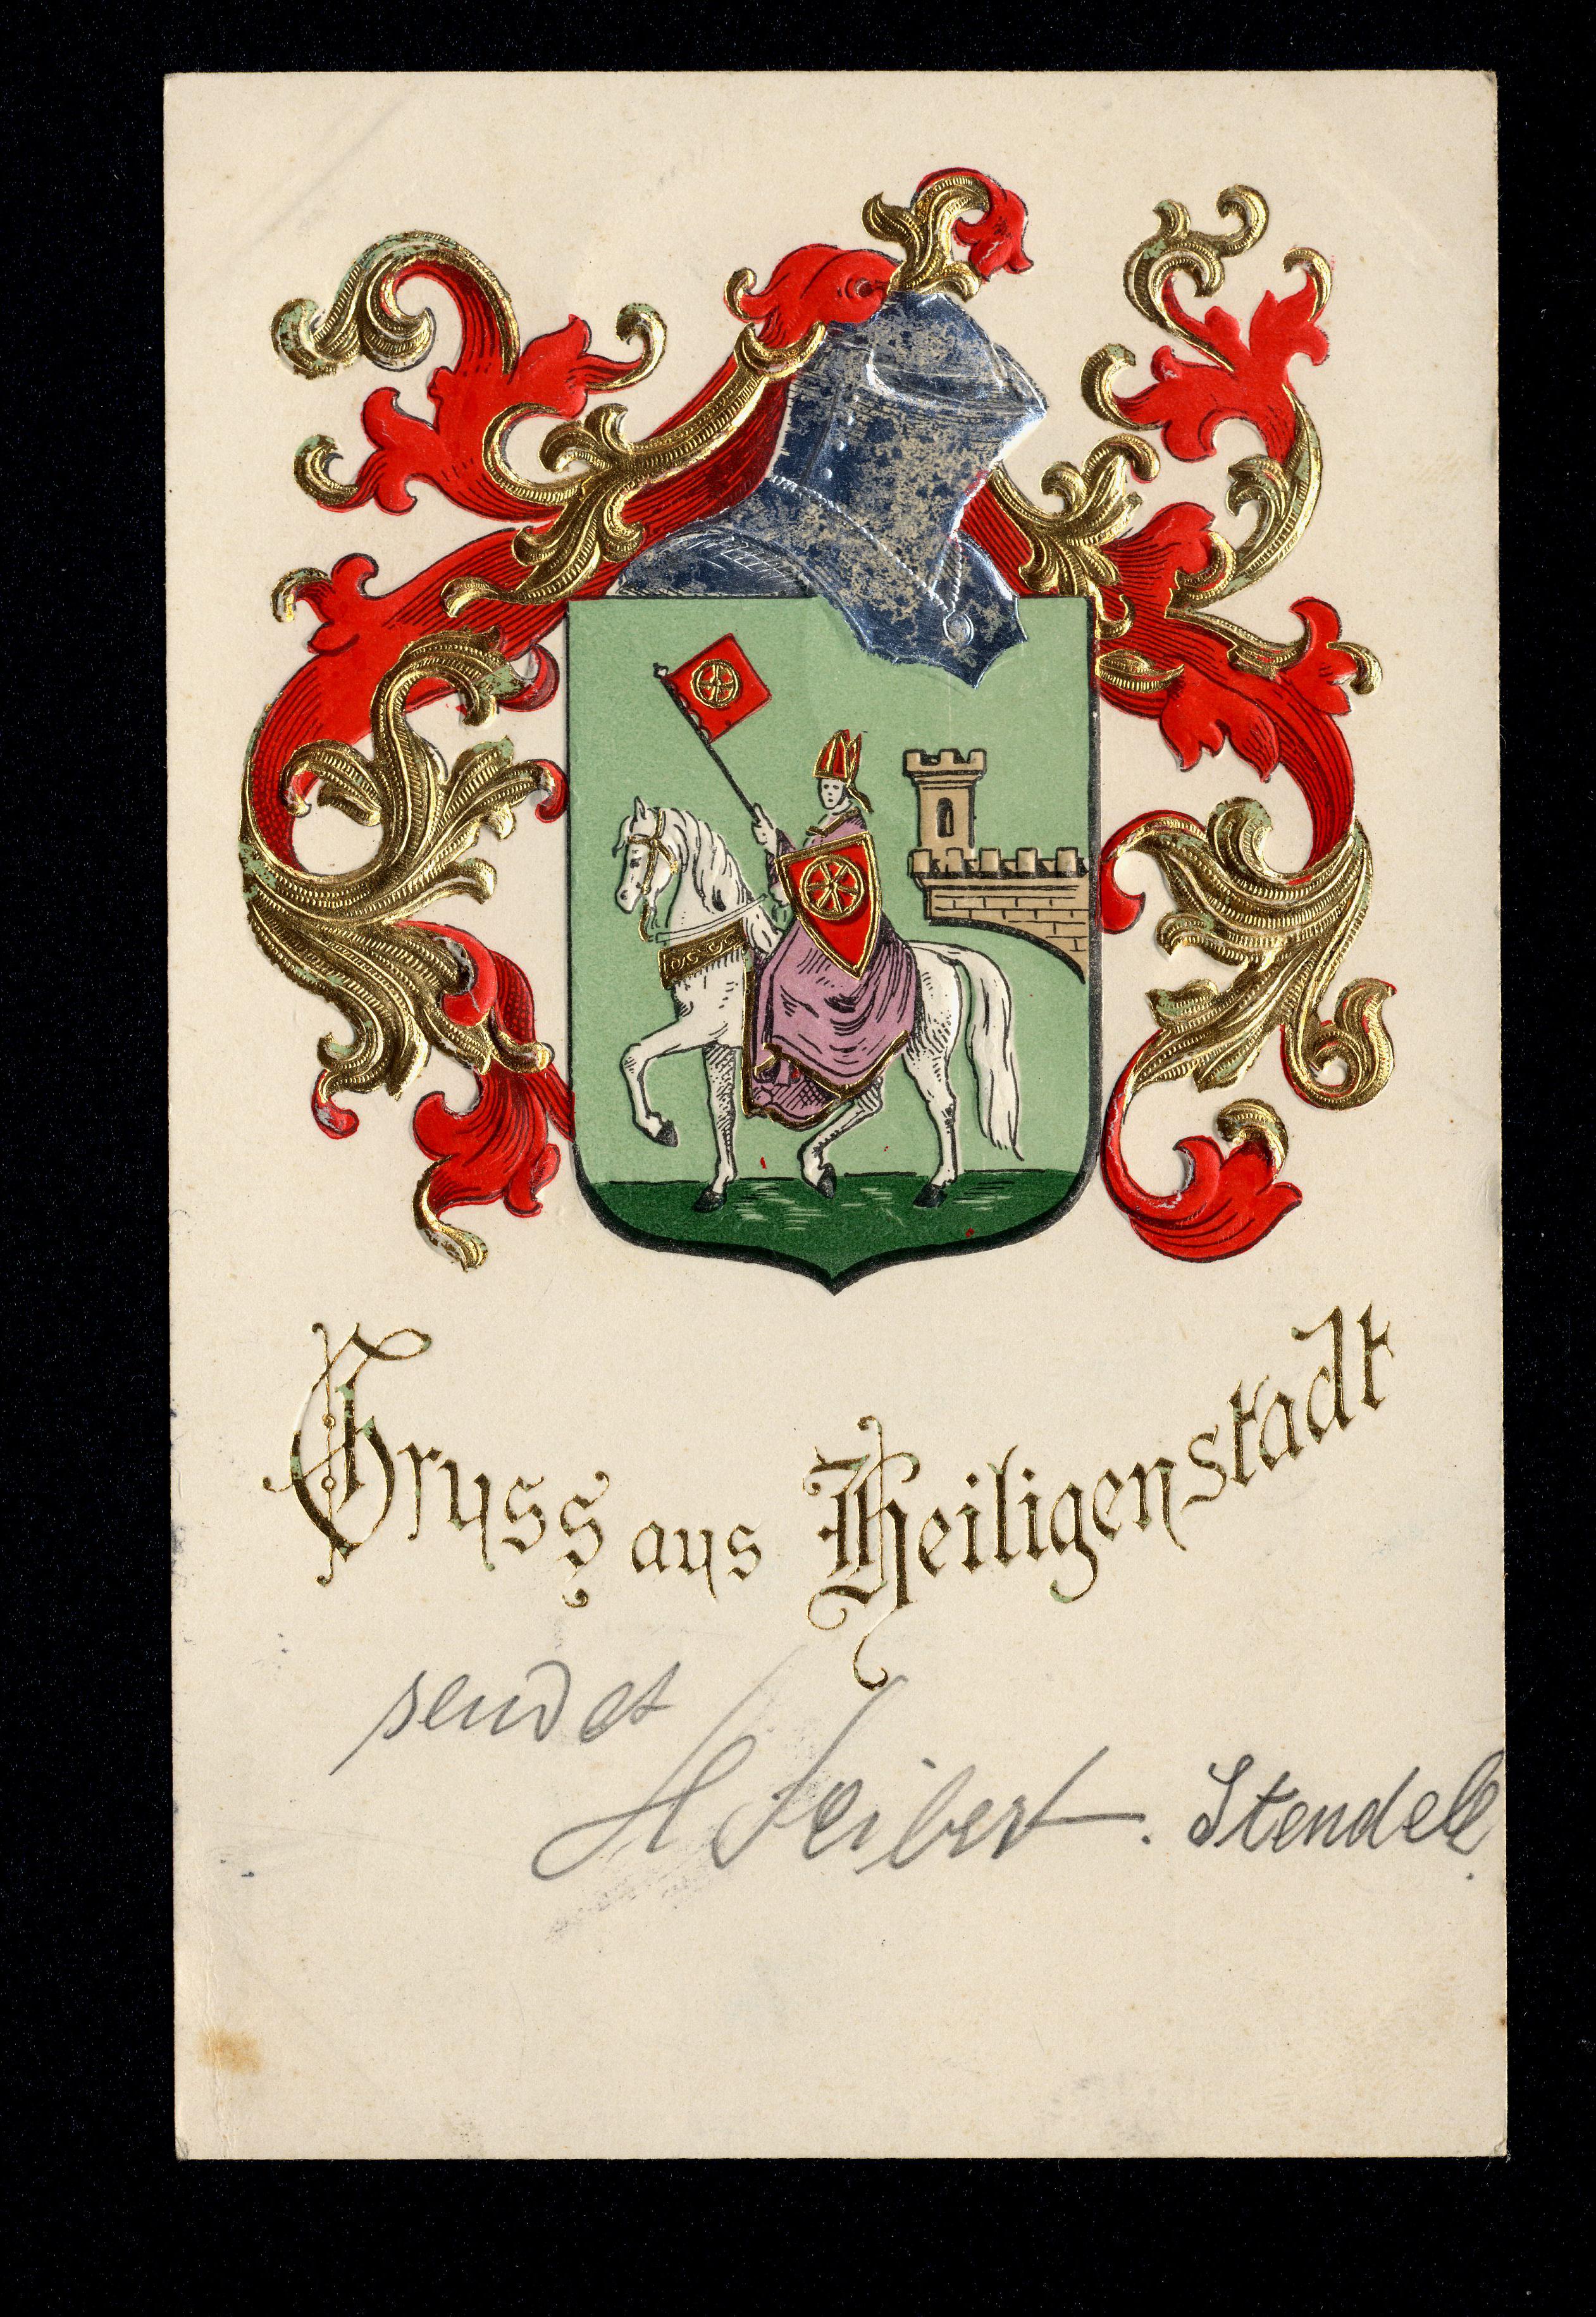 Gruss aus Heiligenstadt
sendet
H Seibert. Stendell